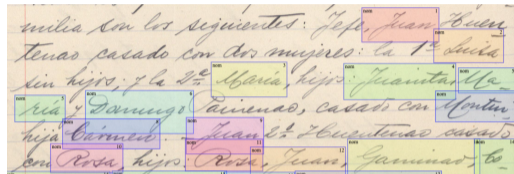 milia son los siguientes: Jefe, Juan Huen
tenao casado con dos mujeres: la 1ª Luisa
sin hijos; y la 2ª María, hijos: Juanita, Ma-
ría y Domingo Cairenao, casado con Monten
hija Cármen. Juan 2º Huentenao casado
con Rosa, hijos: Rosa, Juan, Gaminao,